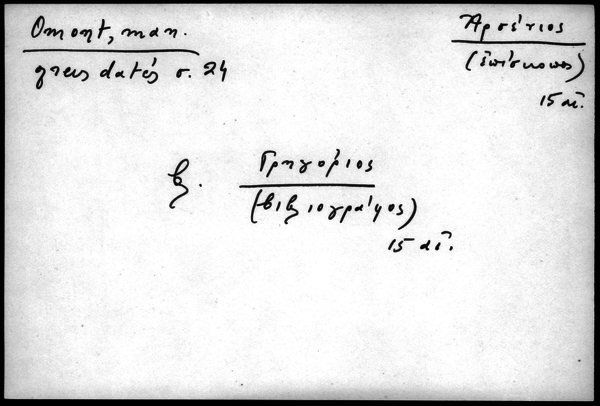 Omont, man.
grecs datés σ. 24
Ἀρσένιος
(ἐπίσκοπος)
15 αἰ.
βλ. Γρηγόριος
(βιβλιογράφος)
15 αἰ.